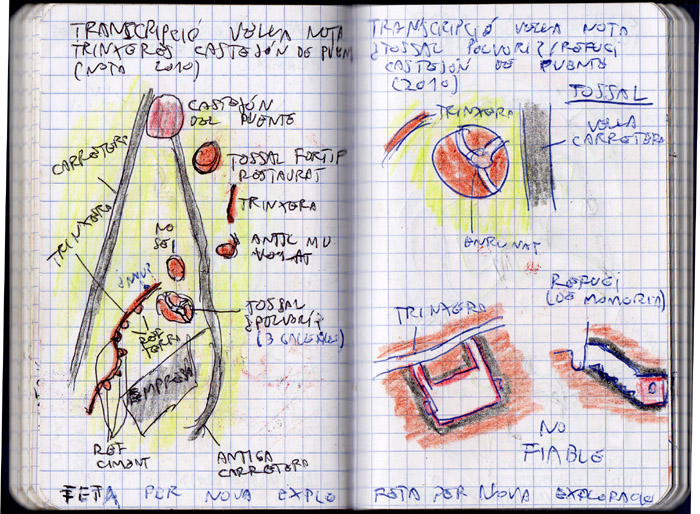 TRANSCRIPCIÓ VELLA NOTA
TRINXERES CASTEJÓN DE PUEN
(NOTA 2010)
CASTEJÓN
DEL PUENTE
CARRETERA
TOSSAL FORTIF
RESTAURAT
TRINXERA
TRINXERA
NO
SÉ!
TOSSAL
¿POLVORÍ?
EMPRESA
REF
CIMENT
ANTIGA
CARRETERA
FETA PER NOVA EXPLO
TRANSCRIPCIÓ VELLA NOTA
¿TOSSAL POLVORÍ?/REFUGI
CASTEJÓN DE PUENTE
(2010)
TOSSAL
TRINXERA
VELLA
CARRETERA
ENRUNAT
REFUGI
(DE MEMORIA)
TRINXERA
NO
FIABLE
FETA PER NOVA EXPLORACIÓ